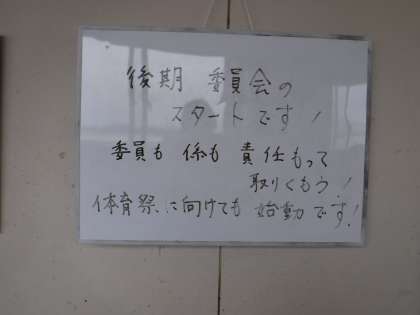 後期 委員会の
スタートです!
委員も 係も 責任もって
取りくもう!
体育祭に向けても 始動です!